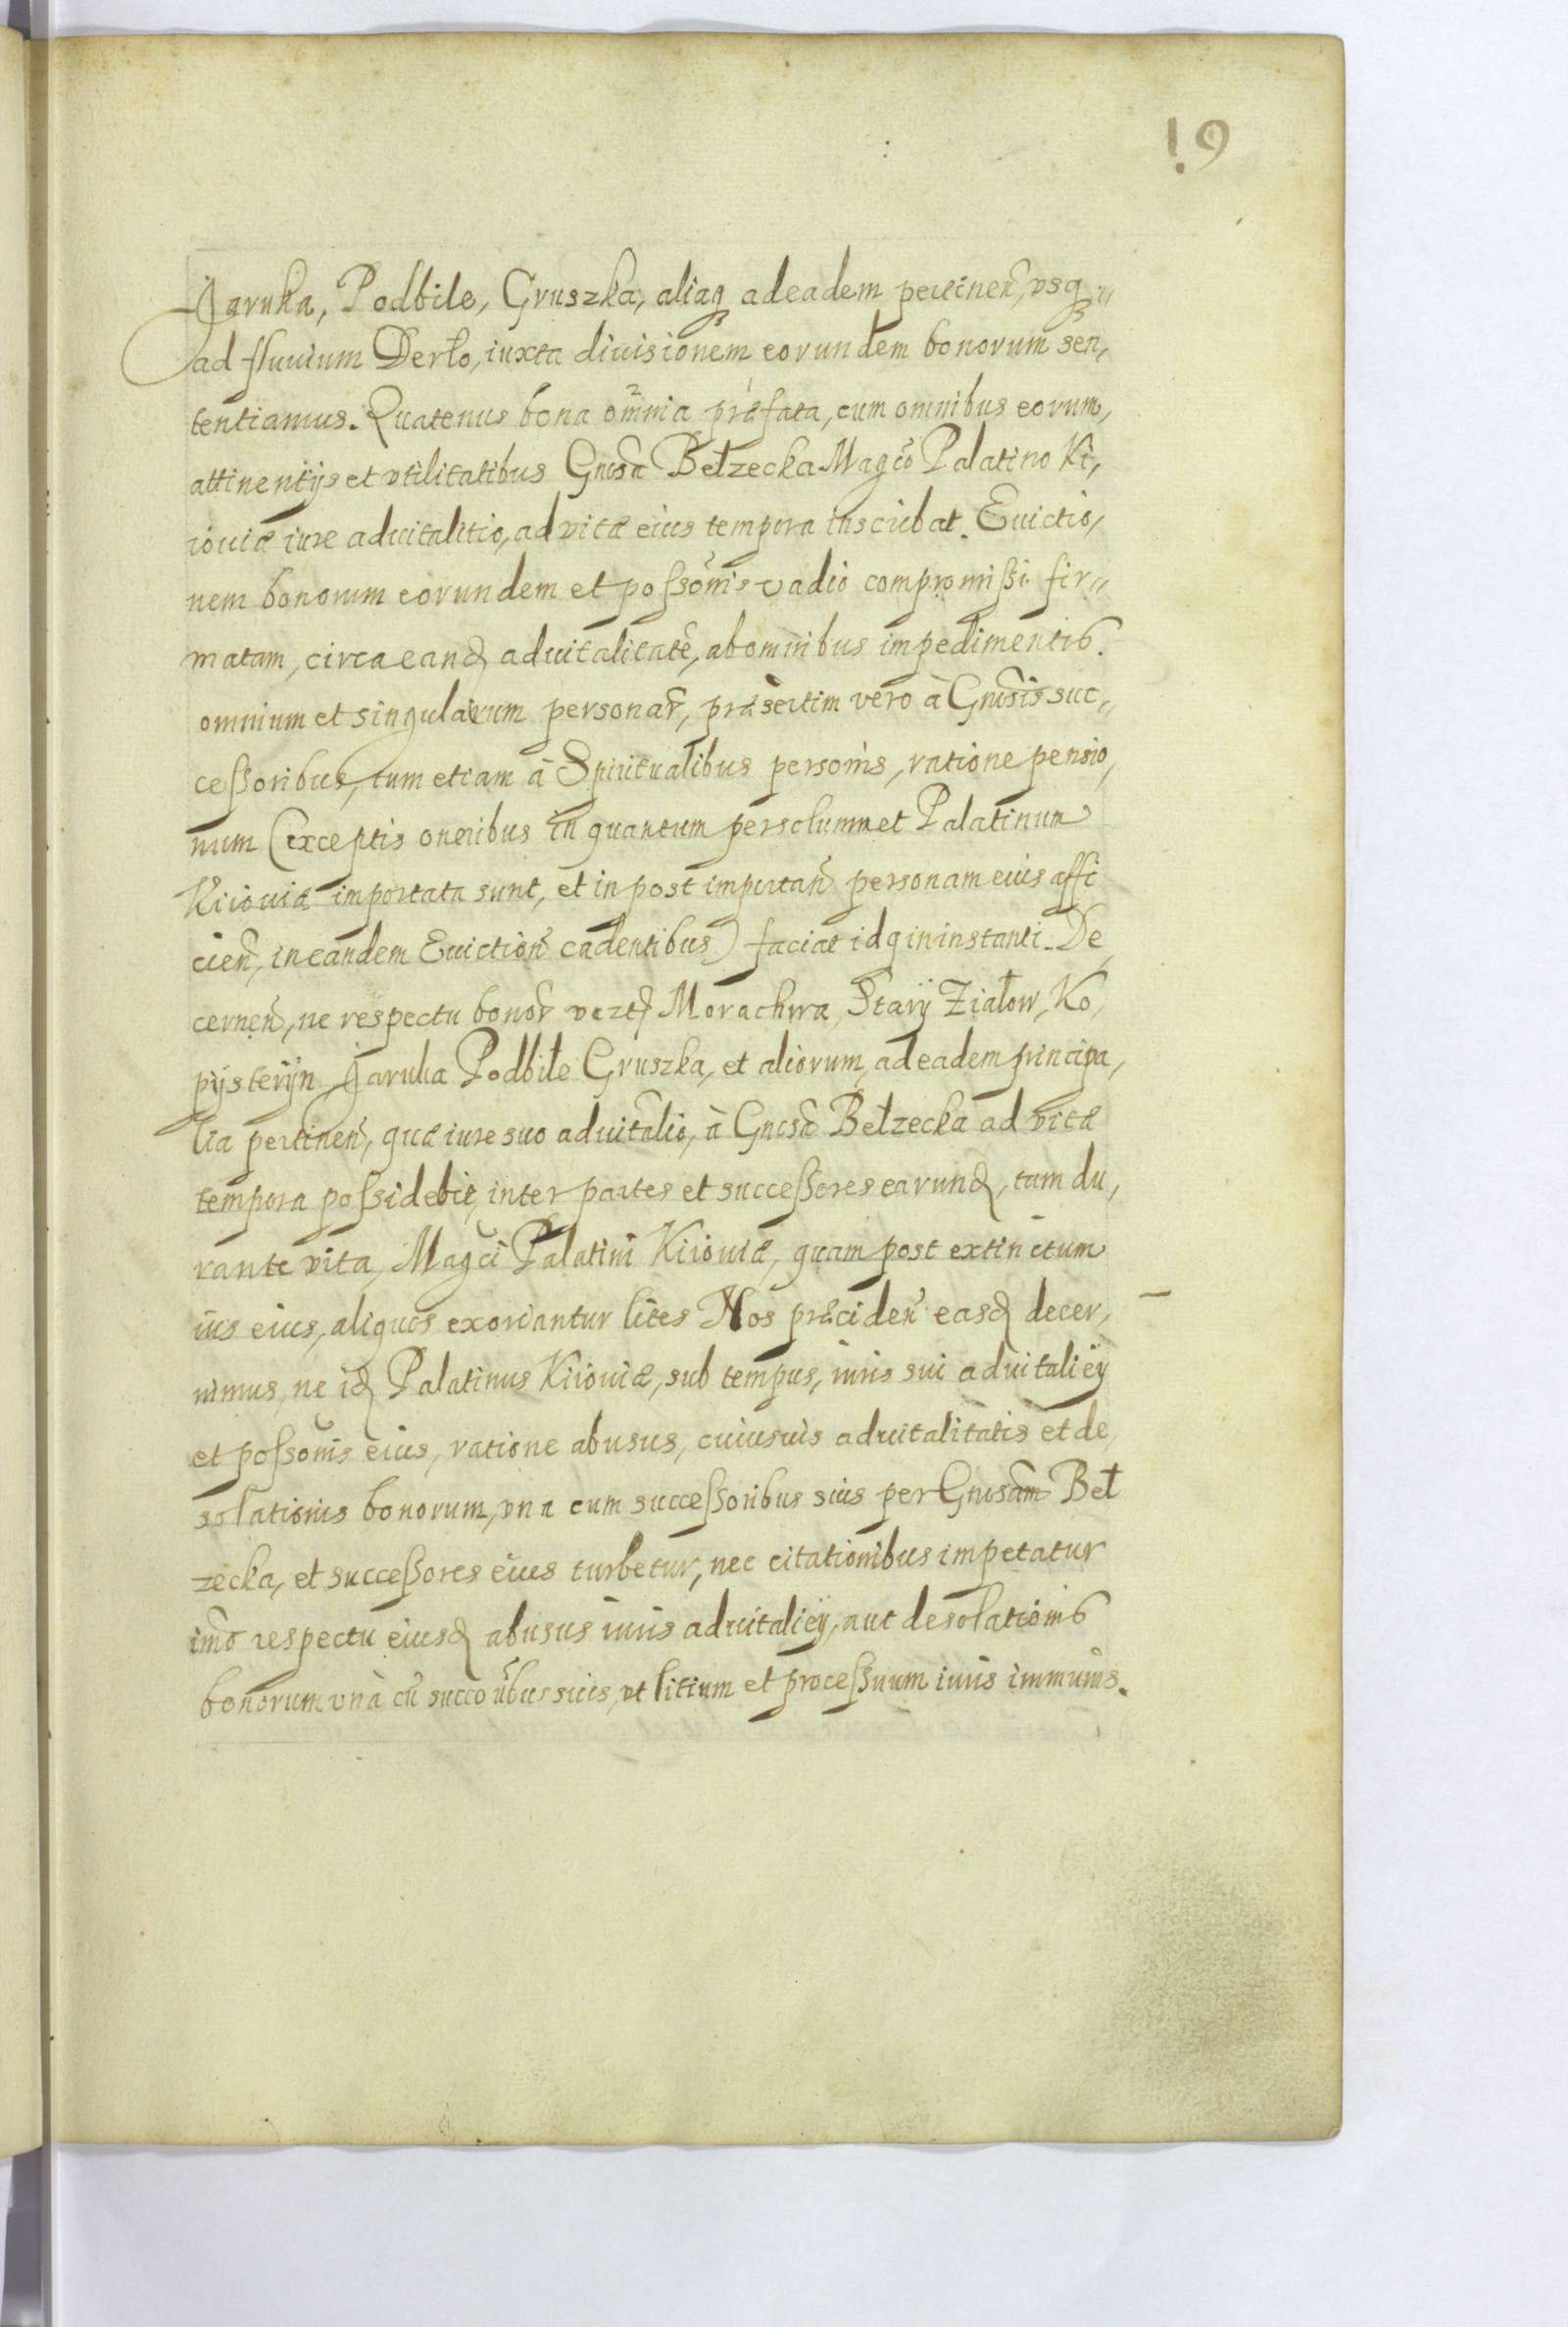 19
Jaruka, Podbile, Gruszka, aliaq ad eadem pertineñ, vsq
ad fluuium Derło, iuxta diuisionem eorundem bonorum sen,
tentiamus. Quatenus bona omnia præfata, cum omnibus eorum,
attinentijs et vtilitatibus Gnosa Bełzecka Magco Palatino Ki,
iouiæ iure aduitalitio, ad vitæ eius tempora inscribat. Euictio,
nem bonorum eorundem et possonis vadio compromissi fir,,
matam, circa eand aduitalitatē, ab omnibus impedimentis.
omnium et singularum personar, præsertim vero à Gnosis suc,,
cessoribus, tum etiam à Spiritualibus personis, ratione pensio,
num (exceptis oneribus in quantum per solummet Palatinum
Kiiouiæ importata sunt, et in post importañ personam eius affi
cieñ, in eandem Euictioñ cadentibus) faciat idq in instanti. De,
cerneñ, ne respectu bonor vezt Morachwa, Stary Ziałow, Ko,
pijsteryn Jaruha Podbiłe Gruszka, et aliorum, ad eadem principa,
lia pertineñ, quæ iure suo aduitalio, à Gnosa Bełzecka ad vitæ
tempora possidebit, inter partes et successores earund, tam du,
rante vita, Magci Palatini Kiiouiæ, quam post extinctum
ius eius, aliquos exoriantur lites Nos præcideñ easd decer,
nimus, ne id Palatinus Kiiouiæ, sub tempus, iuris sui aduitalicij
et possonis eius, ratione abusus, cuiusuis aduitalitatis et de,
solationis bonorum, vna cum successoribus suis per Gnosam Beł
zecka, et successores eius turbetur, nec citationibus impetatur
imo respectu eiusd abusus iuris aduitalicij, aut desolationis
bonorum vnà cū succoribus suis, vt litium et processuum iuris immunis.